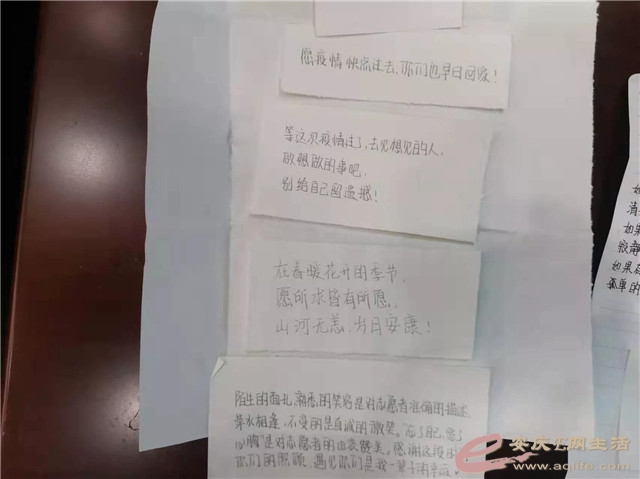 愿疫情快点过去，你们也早日回家！
等这次疫情过了，去见想见的人，
做想做的事吧，
别给自己留遗憾！
在春暖花开的季节，
愿所求皆有所愿，
山河无恙，岁日安康！
陌生的面孔，熟悉的笑容是对志愿者准确的描述，
萍水相逢，不变的是真诚的微笑。"忘了自己，
是对志愿者的由衷赞美。感谢这段时
你们的照顾，遇见你们是我一辈子的幸运。
如
清
如果
寂静
如果在
孤单的
安庆E网生活
www.aqlife.com